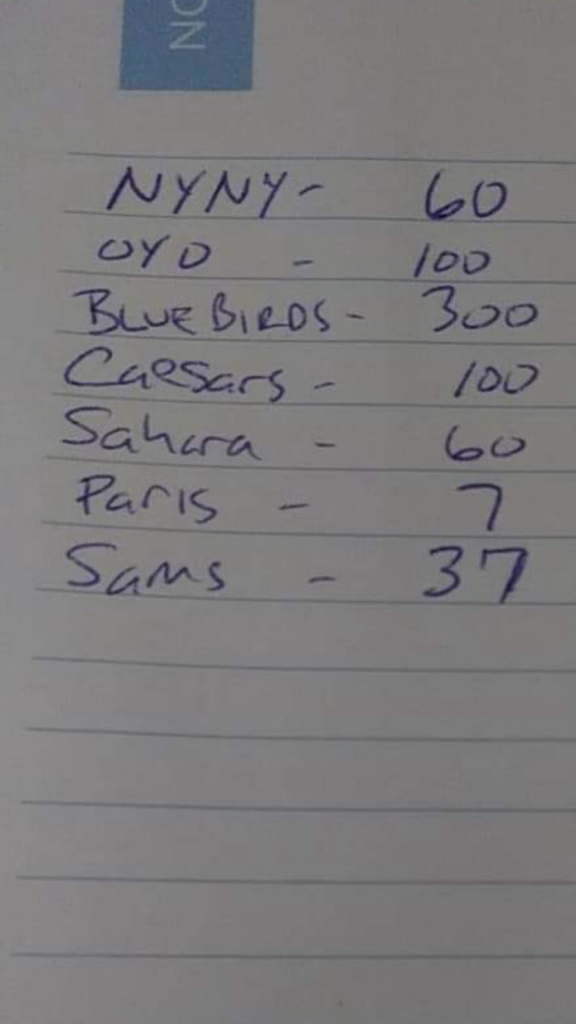 NO
NYNY- 60
OYO - 100
BLUEBIRDS - 300
Caesars - 100
Sahara - 60
Paris - 7
Sams - 37